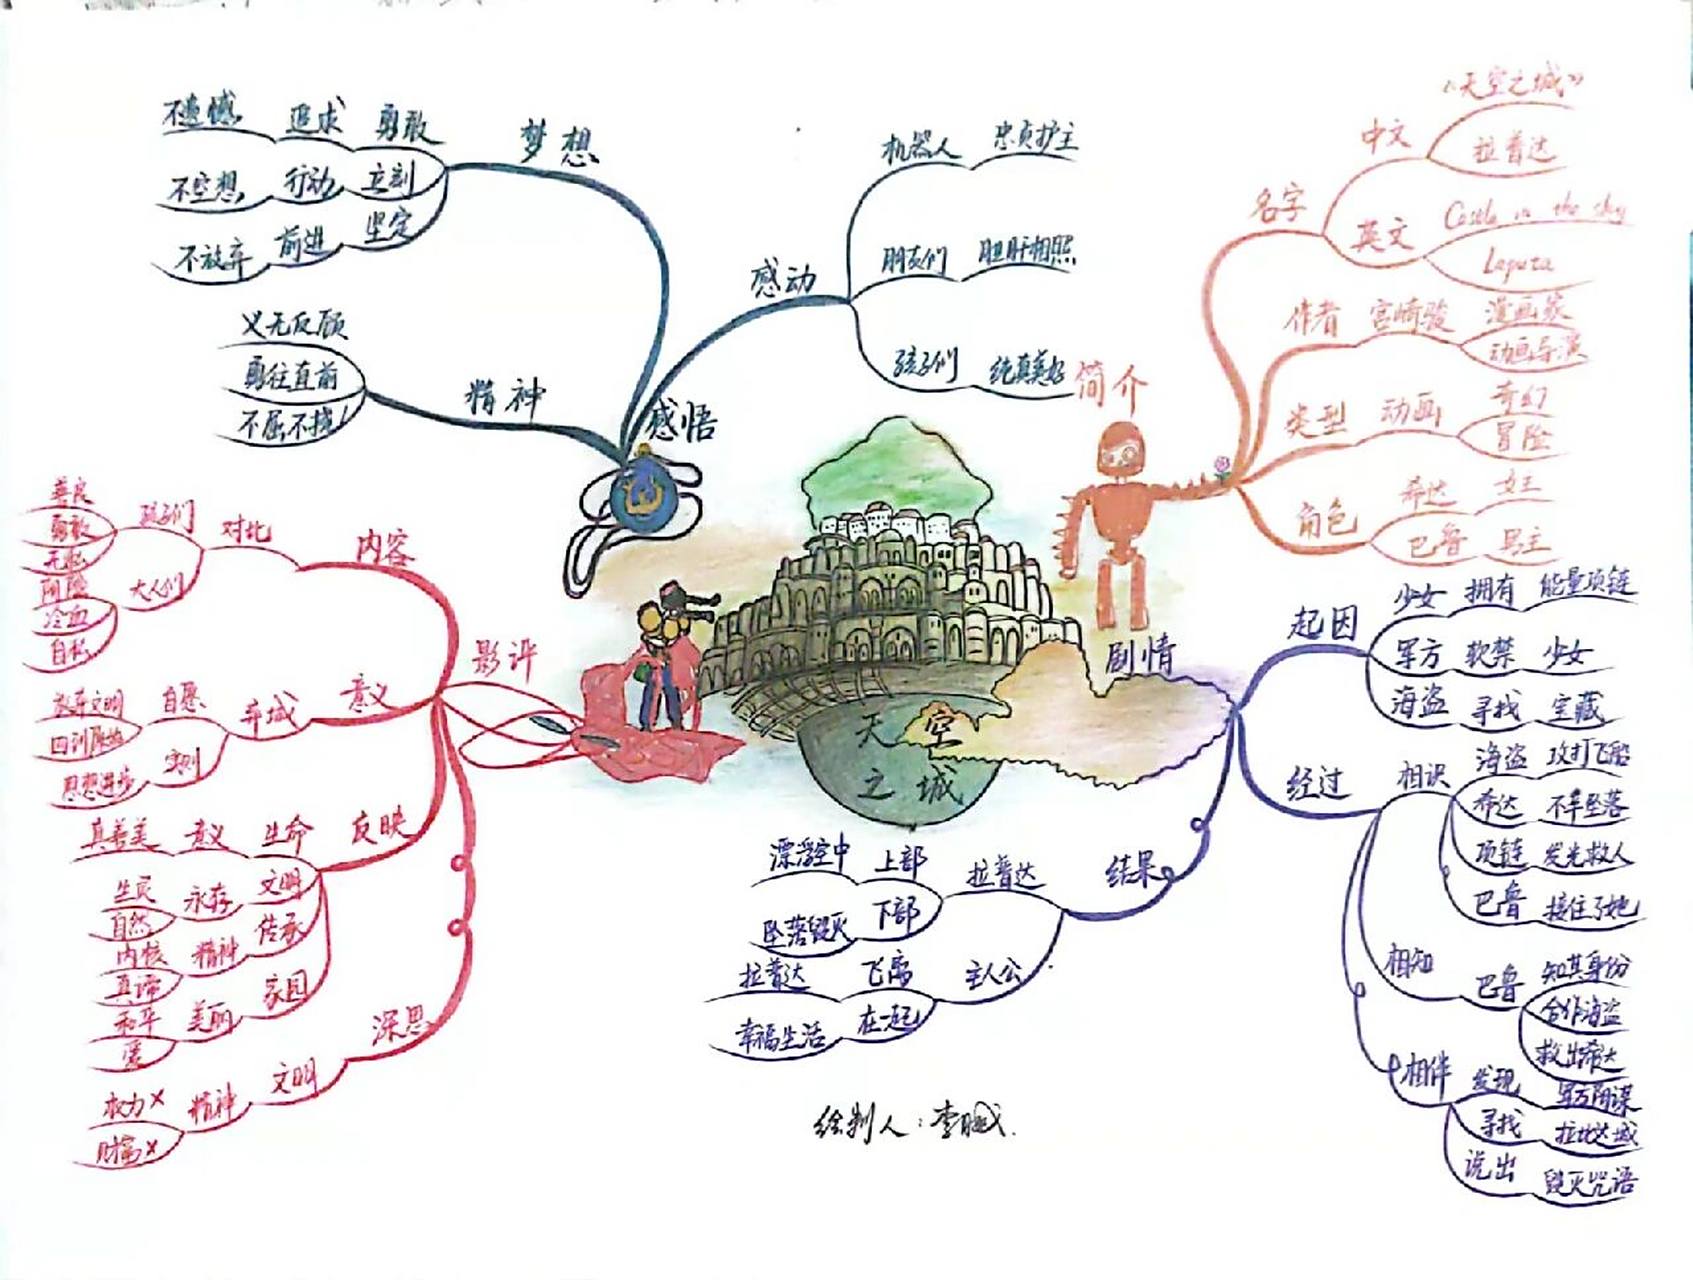 天空之城
简介
名字
中文
《天空之城》
拉普达
英文
Castle in the sky
Laputa
作者 宫崎骏 漫画家
动画导演
类型 动画 奇幻
冒险
角色 希达 女王
巴鲁 男主
剧情
起因
少女 拥有 能量项链
军方 软禁 少女
海盗 寻找 宝藏
经过
相识
海盗 攻打飞船
希达 不幸坠落
项链 发光救人
巴鲁 接住了她
相知
巴鲁 知其身份
合作海盗
救出希达
相伴
发现 军方阴谋
寻找
说出 毁灭咒语
结果
拉普达 上部 漂浮空中
下部 坠落毁灭
主人公 飞离 拉普达
在一起 幸福生活
影评
内容
对比
孩子们 善良
勇敢
无私
大人们 阴险
冷血
自私
意义
弃城
自愿
实则
思想进步
反映
生命 意义 真善美
文明 永存 生灵
自然
传承 精神 内核
真谛
家园 美丽 和平
爱
深思
文明 精神 权力×
财富×
感悟
精神
义无反顾
勇往直前
不屈不挠
梦想
勇敢 追求 不遗憾
立刻 行动 不空想
坚定 前进 不放弃
感动
机器人 忠贞护主
朋友们 肝胆相照
孩子们 纯真美好
绘制人:李